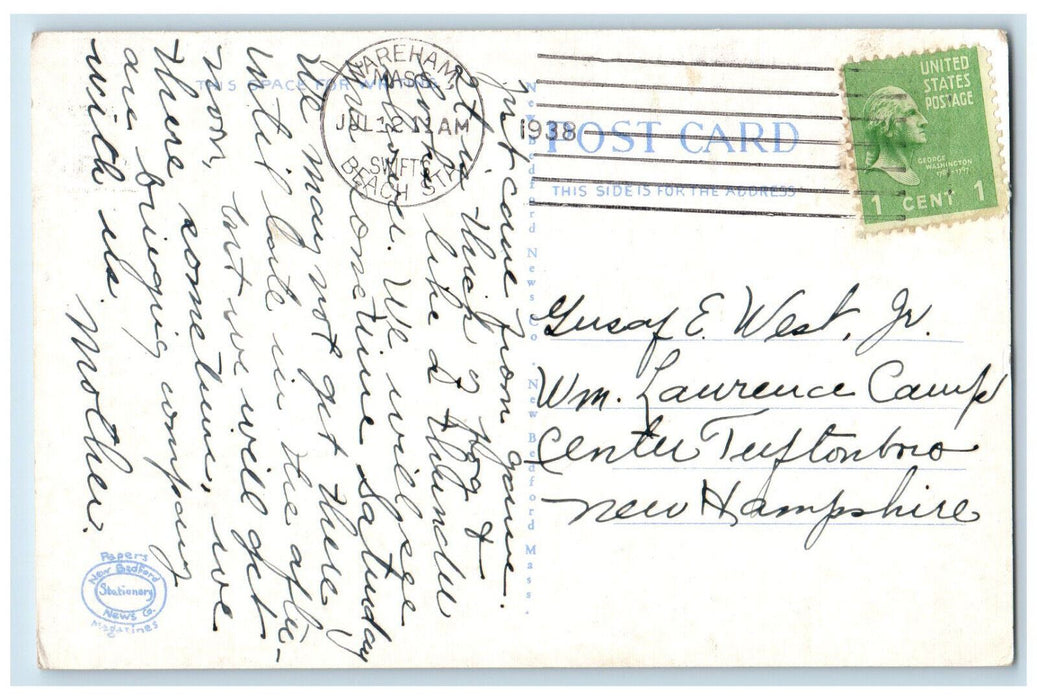 THIS SPACE FOR WRITING
Just came from game.
It is thick fog &
looks like a thunder
storm. We will see
you one time Saturday
We may not get there
until late in the after-
noon, but we will get
there sometime, we
are bringing company
with us.
Mother.
WAREHAM
MASS.
JUL 12 11 AM
1938
SWIFTS
BEACH STA.
UNITED
STATES
POSTAGE
GEORGE
WASHINGTON
1 CENT 1
POST CARD
THIS SIDE IS FOR THE ADDRESS
New Bedford News Co. New Bedford Mass.
Gusaf E. West, Jr.
Wm. Lawrence Camp
Center Tuftonboro
New Hampshire
Papers
New Bedford
Stationery
News Co.
Magazines